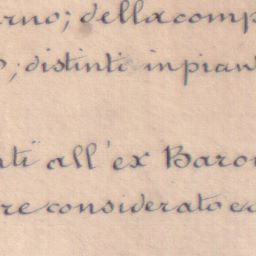 erno; della comp
; distinti in pian
ti all'ex Baro
re considerato ed